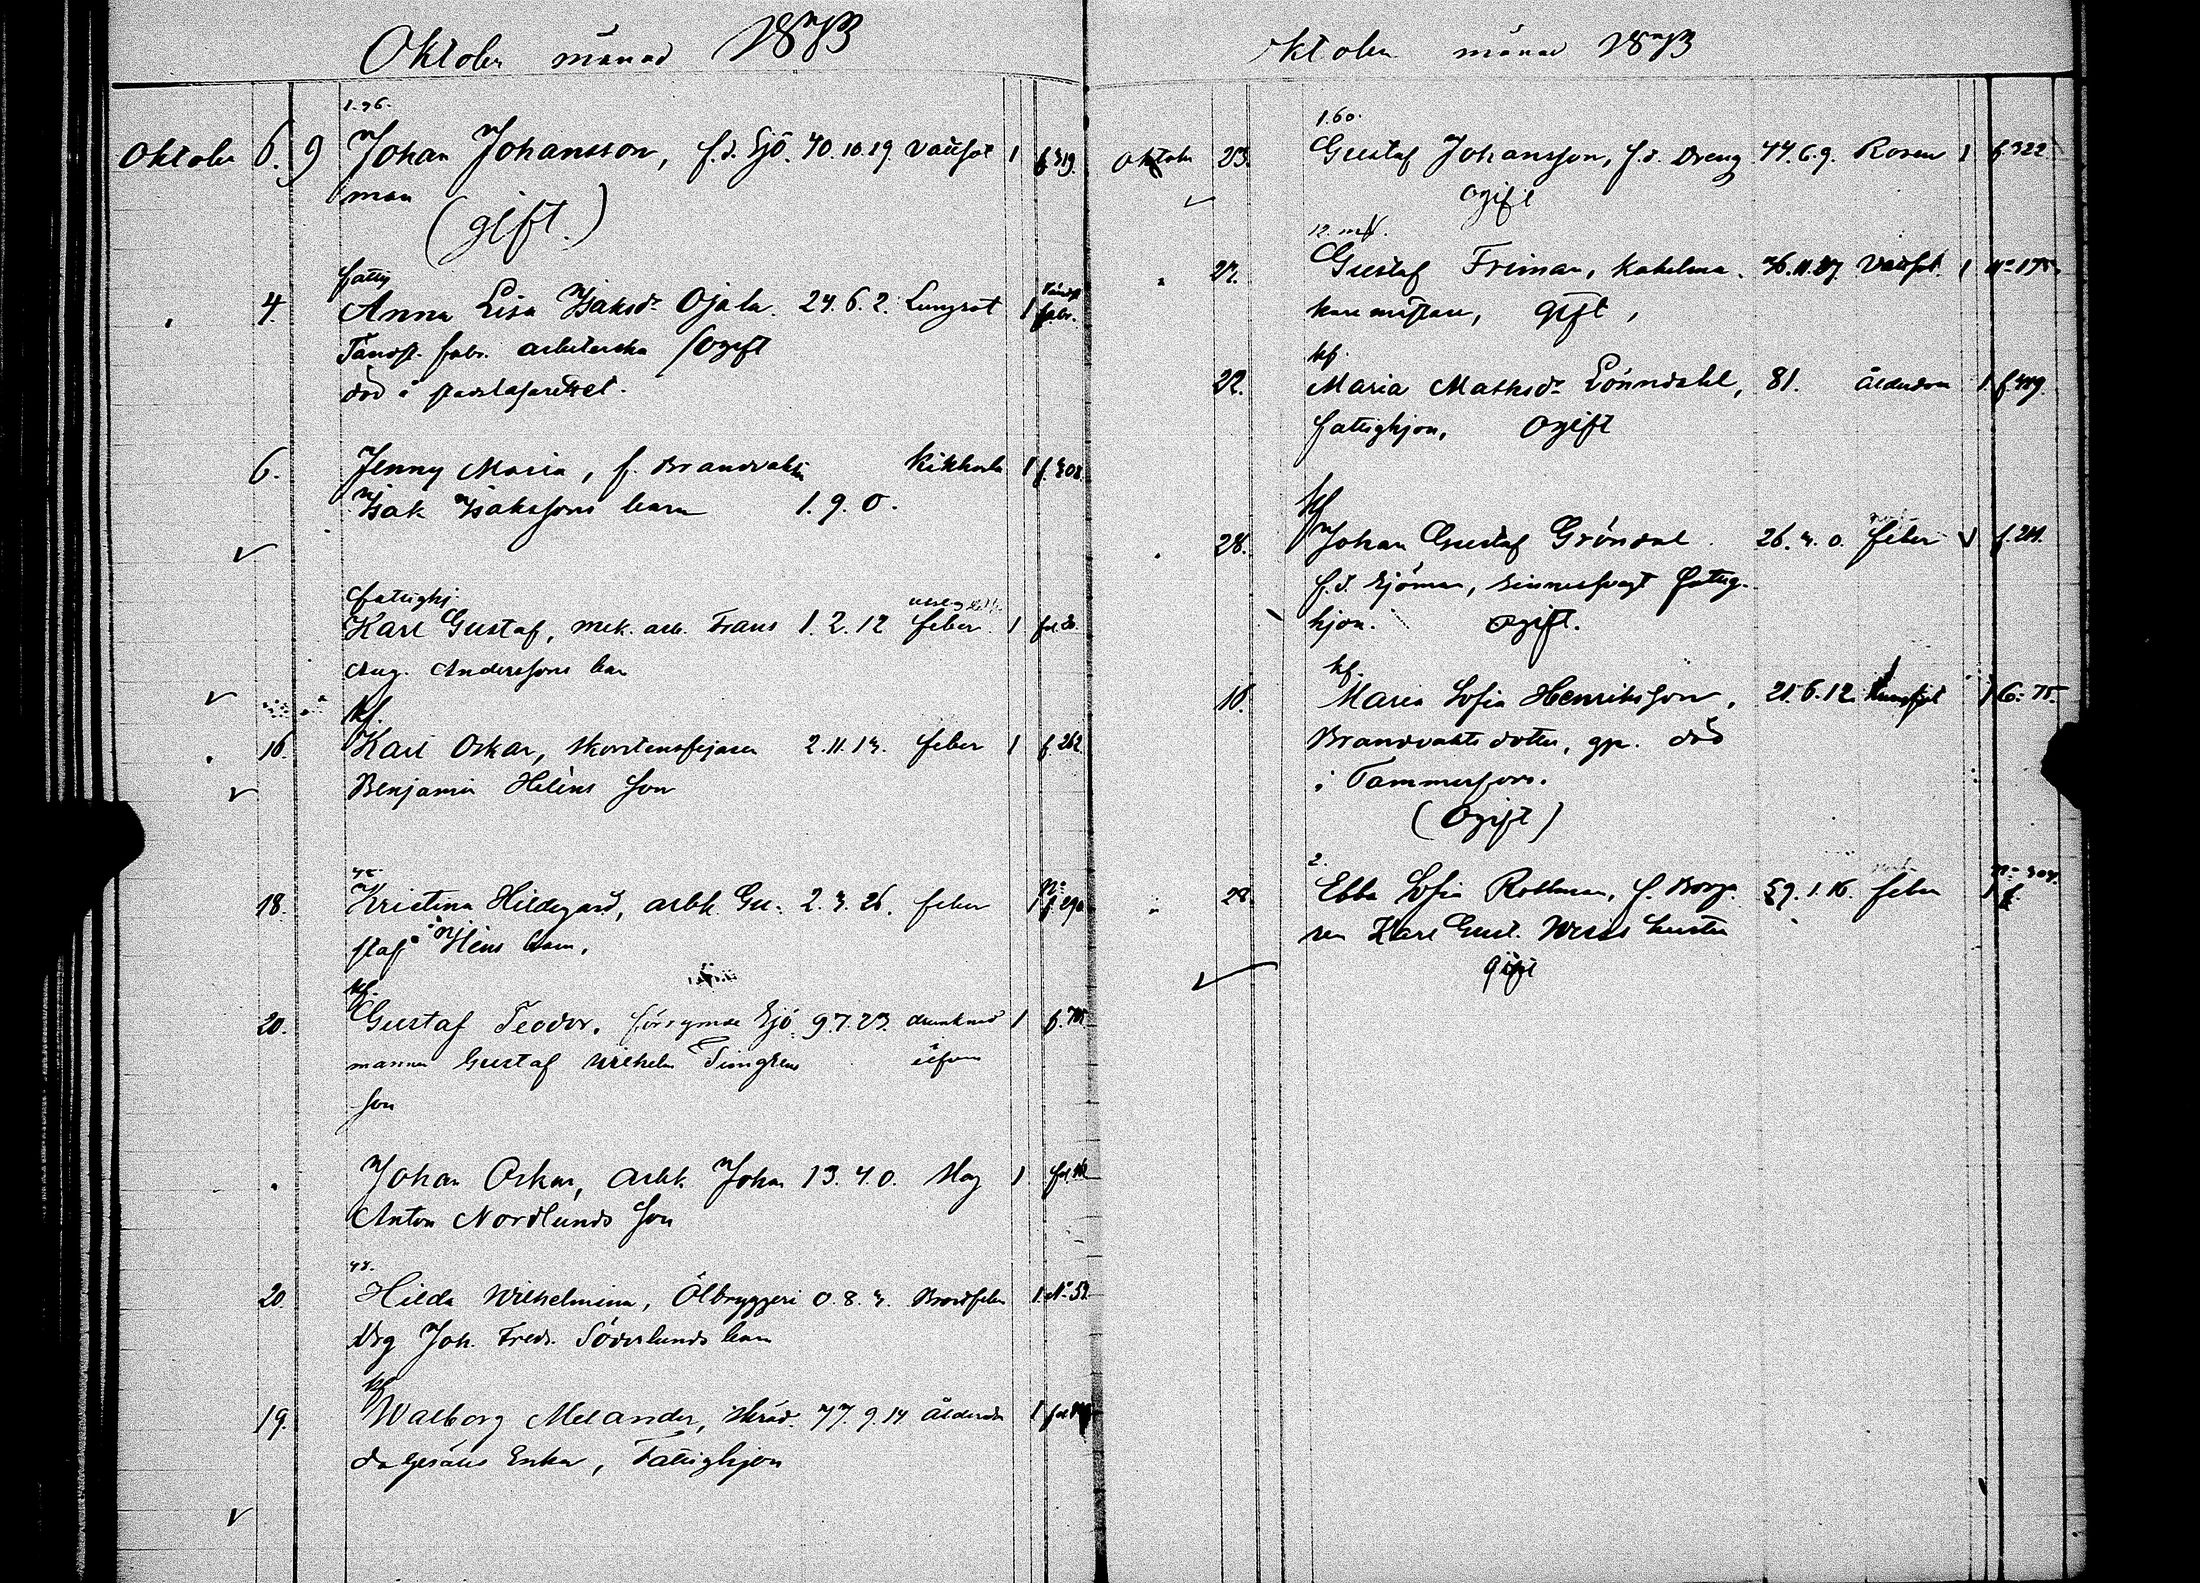 Oktober månad 1873
1.76.
Oktober 6. 9 Johan Johansson, f.d. Sjö- 70.10.19 Vattsot 1 f. 319.
man (gift.)
fattig
4. Anna Lisa Isaksdr Ojala. 24.6.2. Lungsot 1
Tändst. fabr. arbeterska /Ogift
död å stadslasarettet.
6. Jenny Maria, f. Brandvakt Kikhosta 1 f. 308.
Isak Isakssons barn 1.9.0.
fattighj.
Karl Gustaf, mek. arb. Frans 1.2.12 feber 1
Aug. Anderssons barn
kf.
16. Karl Oskar, skorstensfejaren 2.11.13. feber 1 f. 262.
Benjamin Heléns son
18. Kristina Hildegard, arbk. Gu- 2.3.26. feber 1
staf barn.
kf.
20. Gustaf Teodor, förrymde Sjö- 9.7.23. drunknad 1
mannen Gustaf Wilhelm
son
Johan Oskar, arbk. Johan 13.4.0. Slag 1
Anton Nordlunds son
20. Hilda Wilhelmina, Ölbryggeri 0.8.3. Bröstfeber 1
drg Joh. Fredr. Söderlunds barn
kf
19. Walborg Melander, skräd- 77.9.14 Ålderdom 1
daregesäll Enka, Fattighjon
Oktober månad 1873
1.60.
Oktober 23. Gustaf Johansson, f.d. Dreng 44.6.9. Rosen 1 f. 322.
ogift
27. Gustaf Friman, kakelma- 36.11.27 Vattsot. 1 No 175
karemästare, gift,
kf.
22. Maria Mathsdr Lönndahl, 81. Ålderdom 1 f. 419.
fattighjon, Ogift
kf
28. Johan Gustaf Gröndal. 26.3.0. feber 1
f.d. Sjöman, sinnessvagt fattig-
hjon. ogift.
kf.
16. Maria Sofia Henriksson, 21.6.12 1
Brandvakts dotter, gp. död
i Tammerfors.
(Ogift)
2.
28. Ebba Sofia Rothman, f. Borga- 59.1.16. feber 1
ren Karl Gust. hustru
gift